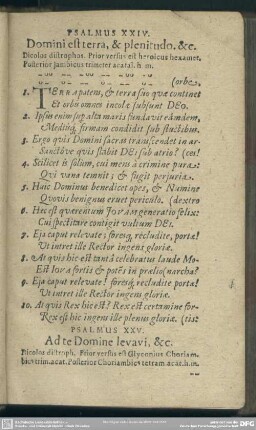 PSALMUS XXIV.
Domini est terra, & plenitudo. &c.
Dicolos distrophos. Prior versus est heroicus hexamet.
Posterior jambicus trimeter acatal. h. m.
(orbe,
1. TEnna patent, & terra suo quæ continet
Et orbis omnes incolæ subsunt DEo.
2. Ipsus enim super alta maris fundavit eãmdem,
firmam condidit sub fluctibus.
3. Ergo quis Domini sacra transcendet in ar-
quis stabit DEi sub atrio? (cei!
4. Scilicet is solum, cui mens à crimine pura:
Qui vana temnit; & fugit perjuria.
5. Huic Dominus benedicet opes, & Numine
Quovis benignus eruet periculo. (dextro
6. Hec est quærentum Jovam generatio felix:
Cui spectare contigit vultum DEi.
7. Eja caput relevate; foresq, recludite, portæ!
Ut intret ille Rector ingens gloriæ.
8. At quis hic est tantâ celebratus laude Mo-
Est Iova fortis & potẽs in prœlio (narcha?
9. Eja caput relevate! foresq, recludite, portæ!
Ut intret ille Rector ingens gloriæ.
10. At quis Rex hic est? Rex est certamine for-
Rex est hic ingens ille plenus gloriæ. (tis:
PSALMUS XXV.
Ad te Domine levavi, &c.
Dicolos distroph. Prior versus est Glyconius Choriam.
bic. trim. acat. Posterior Choriambic. tetram. acat. h. m.